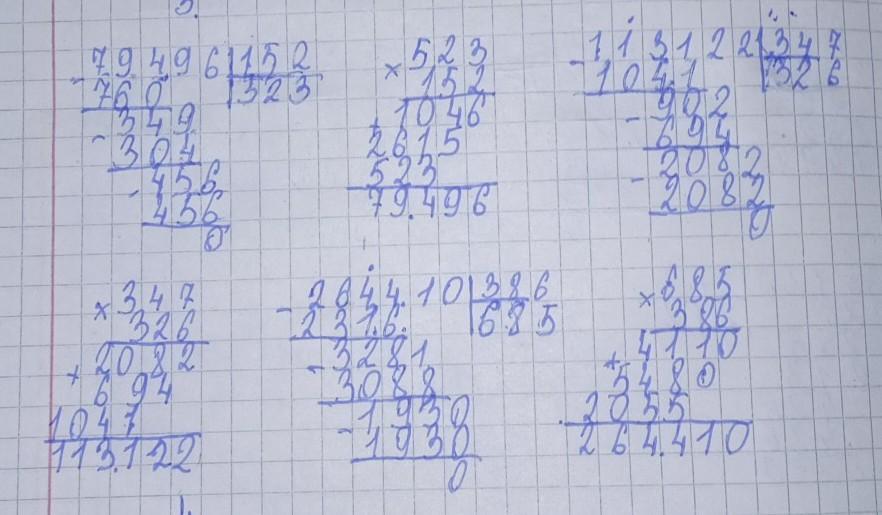 - 79496 | 152
760 | 323
- 349
304
- 456
456
0
× 523
152
+ 1046
2615
523
79.496
- 113122 | 347
104.1 | 326
- 902
694
- 2082
2082
0
× 347
326
+ 2082
694
1041
113.122
- 2644.10 | 386
231.6. | 685
- 3281
3088
- 1930
1930
0
× 685
386
+ 4110
5480
2055
264.410